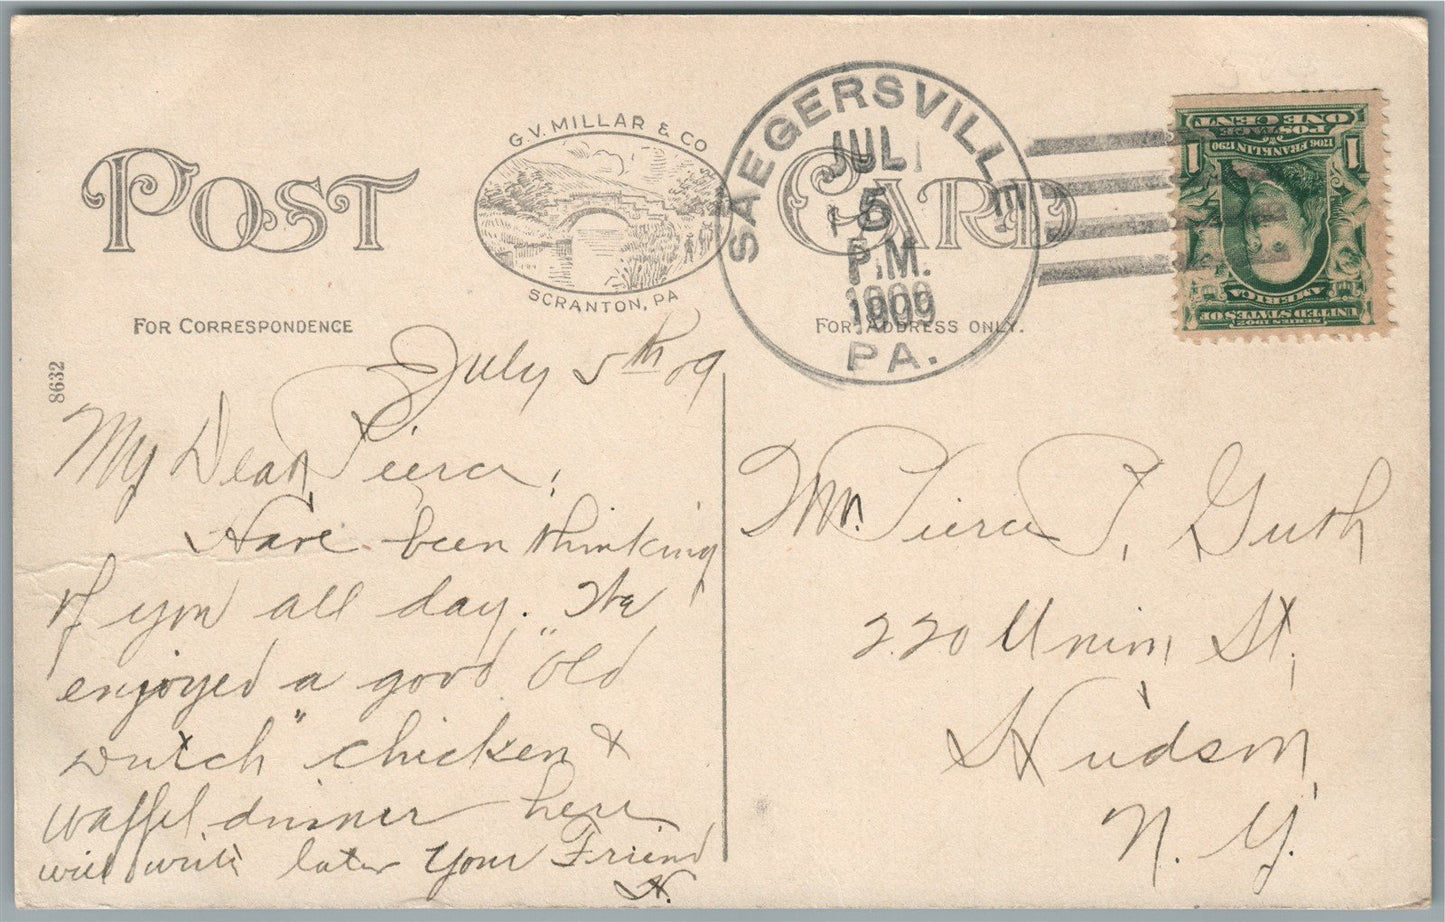 G.V. MILLAR & CO
SCRANTON, PA
POST CARD
FOR CORRESPONDENCE
FOR ADDRESS ONLY.
8632
SAEGERSVILLE
JUL
5
P.M.
1909
PA.
ONE CENT
POSTAGE
1706 FRANKLIN 1790
1 1
AMERICA
UNITED STATES OF
SERIES 1902
July 5th 09
My Dear Pierce,
Have been thinking
of you all day. We
enjoyed a good "Old
Dutch" chicken &
waffel dinner here
will write later Your Friend
H.
Mr. Pierce P. Guth
220 Union St,
Hudson,
N. Y.